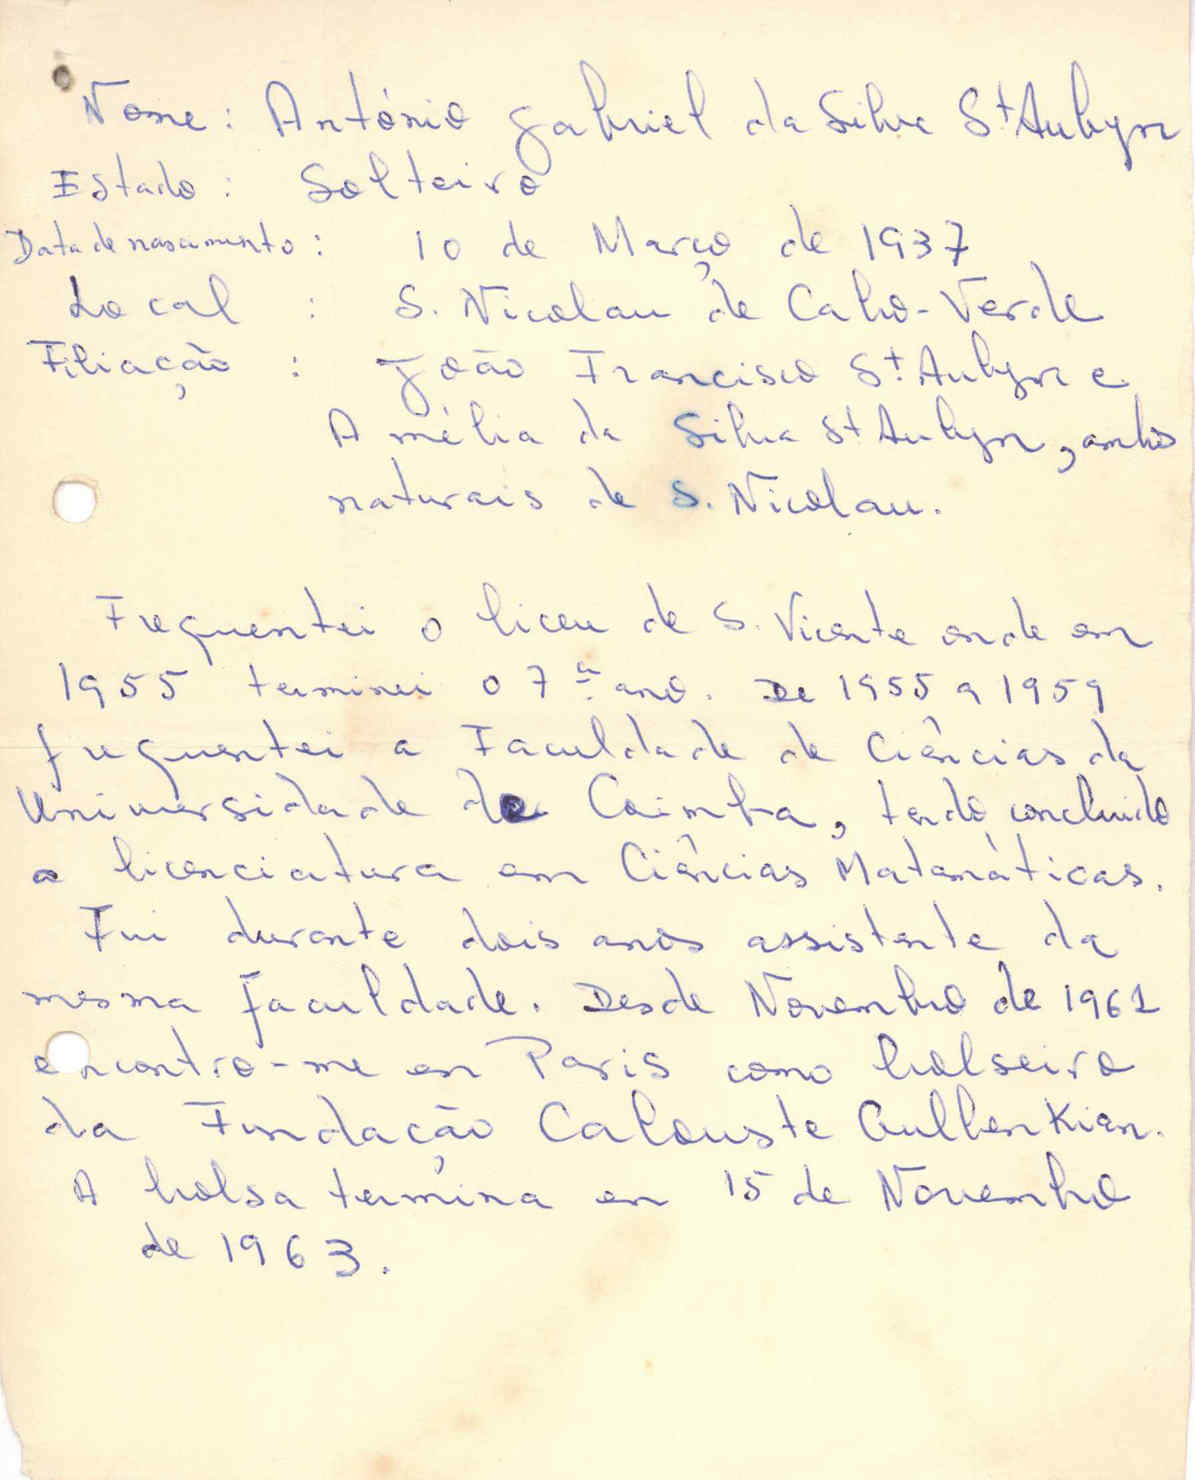 Nome: António Gabriel da Silva St Aubyn
Estado: Solteiro
Data de nascimento: 10 de Março de 1937
Local : S. Nicolau de Cabo-Verde
Filiação : João Francisco St. Aubyn e
Amélia da Silva St Aubyn, ambos
naturais de S. Nicolau.
Frequentei o liceu de S. Vicente onde em
1955 terminei o 7º ano. De 1955 a 1959
frequentei a Faculdade de Ciências da
Universidade de Coimbra, tendo concluido
a licenciatura em Ciências Matemáticas.
Fui durante dois anos assistente da
mesma faculdade. Desde Novembro de 1961
encontro-me em Paris como bolseiro
da Fundação Calouste Gulbenkian.
A bolsa termina em 15 de Novembro
de 1963.